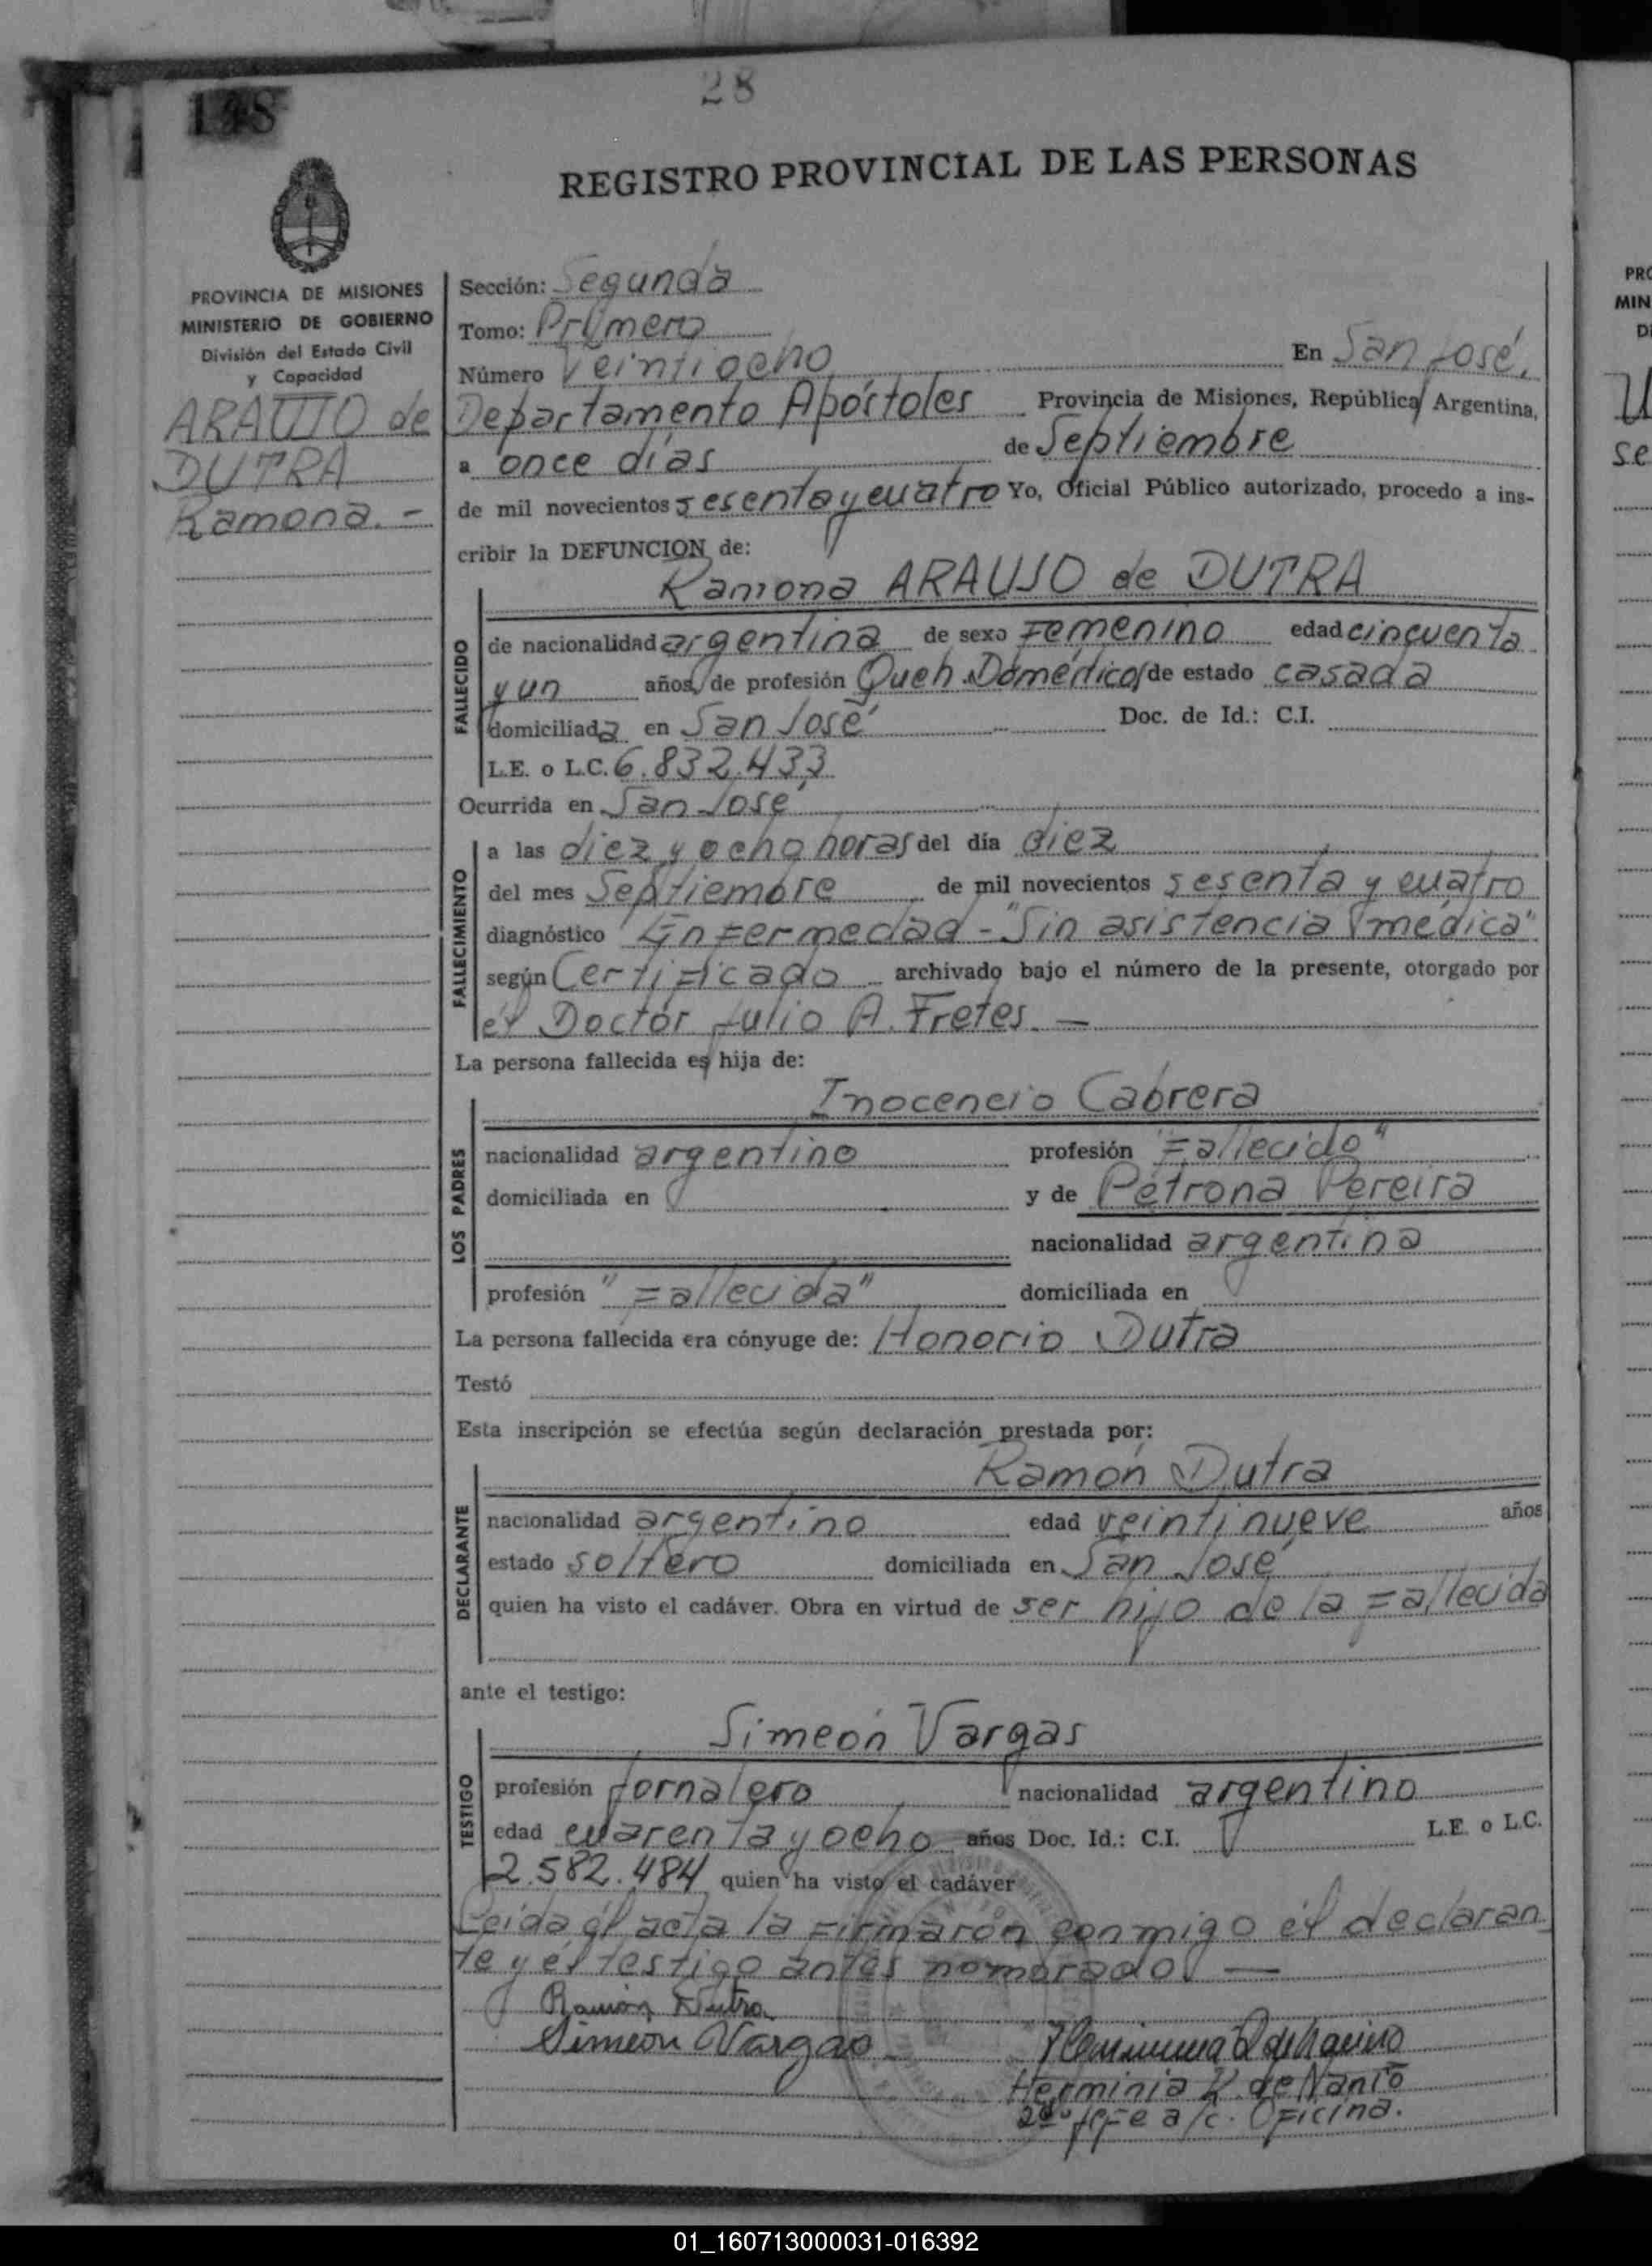 28
198
REGISTRO PROVINCIAL DE LAS PERSONAS
PROVINCIA DE MISIONES
MINISTERIO DE GOBIERNO
División del Estado Civil
y Capacidad
ARAUJO de
DUTRA
Ramona. -
Sección: Segunda
Tomo: Primero
Número Veintiocho En San José,
Departamento Apóstoles Provincia de Misiones, República Argentina,
a once días de Septiembre
de mil novecientos sesenta y cuatro Yo, Oficial Público autorizado, procedo a ins-
cribir la DEFUNCION de:
Ramona ARAUJO de DUTRA
FALLECIDO
de nacionalidad argentina de sexo Femenino edad cincuenta
y un años, de profesión Queh. Doméstico, de estado casada
domiciliada en San José Doc. de Id.: C.I.
L.E. o L.C. 6.832.433
Ocurrida en San José
FALLECIMIENTO
a las diez y ocho horas del día diez
del mes Septiembre de mil novecientos sesenta y cuatro
diagnóstico Enfermedad - "Sin asistencia médica"
según Certificado archivado bajo el número de la presente, otorgado por
el Doctor Julio A. Fretes. —
La persona fallecida es hija de:
LOS PADRES
Inocencio Cabrera
nacionalidad argentino profesión "Fallecido"
domiciliada en y de Petrona Pereira
nacionalidad argentina
profesión "Fallecida" domiciliada en
La persona fallecida era cónyuge de: Honorio Dutra
Testó
Esta inscripción se efectúa según declaración prestada por:
DECLARANTE
Ramón Dutra
nacionalidad argentino edad veintinueve años
estado soltero domiciliada en San José
quien ha visto el cadáver. Obra en virtud de ser hijo de la Fallecida
ante el testigo:
TESTIGO
Simeón Vargas
profesión Jornalero nacionalidad argentino
edad cuarenta y ocho años Doc. Id.: C.I. L.E. o L.C.
2.582.484 quien ha visto el cadáver
Leida el acta la Firmaron conmigo el declaran
te y el testigo antes nombrado —
Ramón Dutra
Simeon Vargas
Herminia K. de Nanio
2do. Jefe a/c. Oficina.
PRO
MIN
Di
se
01_160713000031-016392